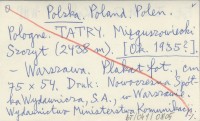 Polska. Poland. Polen.
Pologne. TATRY. Mięguszowiecki
Szczyt (2438 m). [Ok. 1935?]
– Warszawa. Plakat fot. cm
75 x 54. Druk: Nowoczesna Spół-
ka Wydawnicza, S.A., – Warszawa.
Wydawnictwo Ministerstwa Komunikacji.